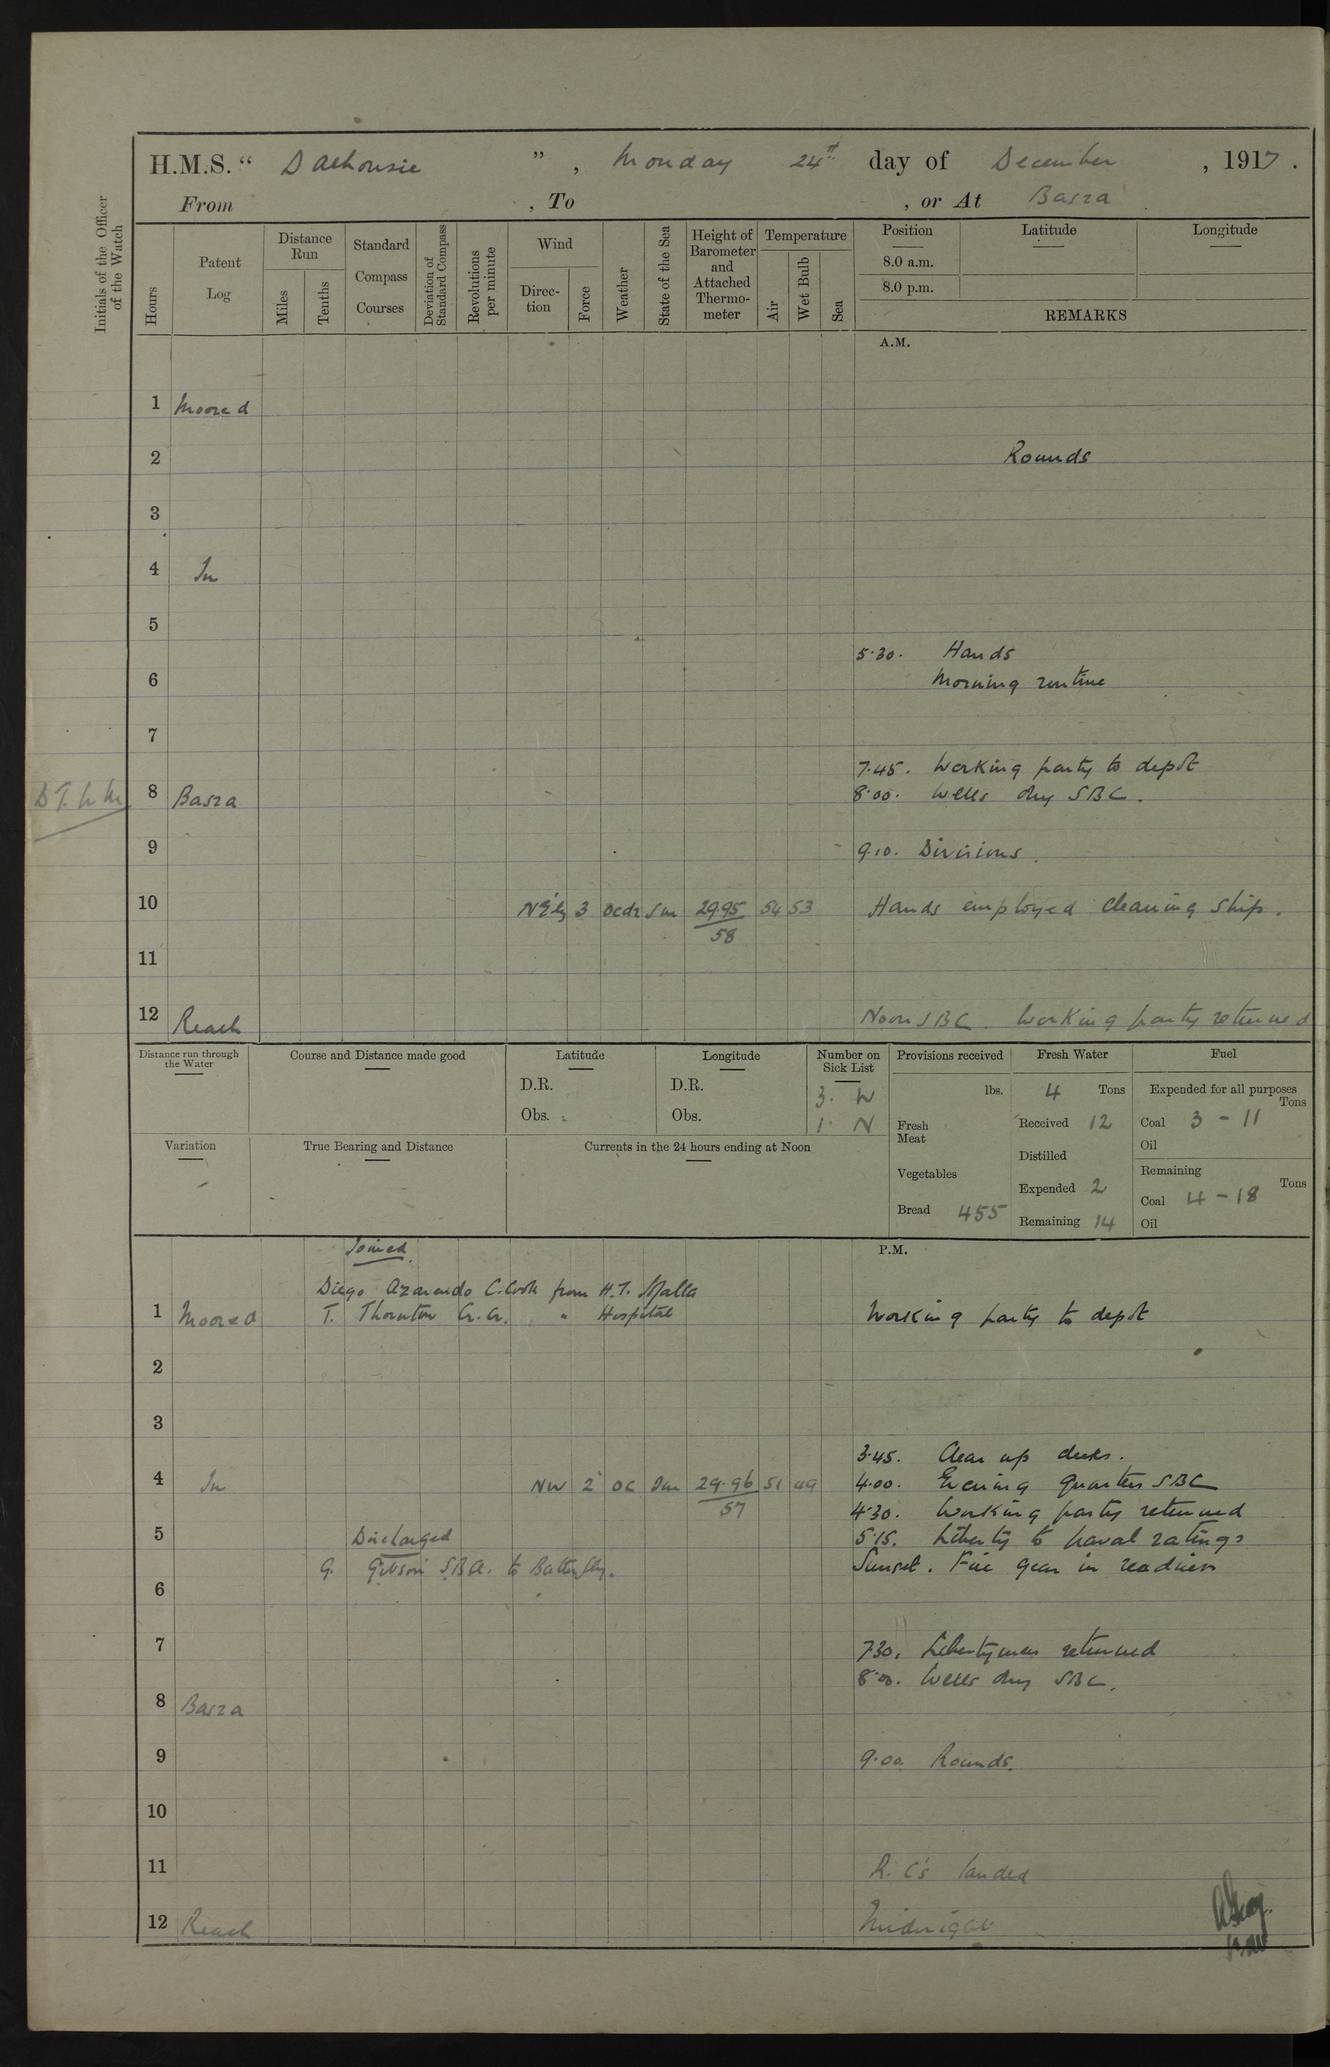 H.M.S. " Dalhousie " , Monday 24th day of December , 1917 .
From , To , or At Basra
Initials of the Officer of the Watch
Hours
Patent Log
Distance Run
Miles
Tenths
Standard Compass Courses
Deviation of Standard Compass
Revolutions per minute
Wind
Direc-tion
Force
Weather
State of the Sea
Height of Barometer and Attached Thermo-meter
Temperature
Air
Wet Bulb
Sea
Position
Latitude
Longitude
8.0 a.m.
8.0 p.m.
REMARKS
A.M.
1 Moored
2 Rounds
3
4 In
5
5.30. Hands
6 Morning routine
7
7.45. Working party to depôt
8 Basra 8.00. Wells dry SBC.
9 9.10. Divisions.
10 NE'ly 3 Sm 29.95 54 53 Hands employed cleaning ship.
58
11
12 Reach Noon SBC. Working party returned
Distance run through the Water
Course and Distance made good
Latitude
D.R.
Obs.
Longitude
D.R.
Obs.
Number on Sick List
3. W
1. N
Provisions received
lbs.
Fresh Meat
Vegetables
Bread 455
Fresh Water
4 Tons
Received 12
Distilled
Expended 2
Remaining 14
Fuel
Expended for all purposes
Tons
Coal 3 - 11
Oil
Remaining
Tons
Coal 4 - 18
Oil
Variation
True Bearing and Distance
Currents in the 24 hours ending at Noon
P.M.
Joined
Diego C. Cook from H.T.
1 Moored T. Thornton " Hospital Working party to depôt
2
3
3.45. Clear up decks.
4 In NW 2 oc Sm 29.96 51 49 4.00. Evening quarters SBC
57
4.30. Working party returned
5 Discharged 5.15. Liberty to naval ratings
G. Gibson S.B.A. to Butterfly. Sunset. Fire gear in readiness
6
7 7.30. Libertymen returned
8.00. Wells dry SBC.
8 Basra
9 9.00 Rounds.
10
11 R.C's landed
12 Reach Midnight